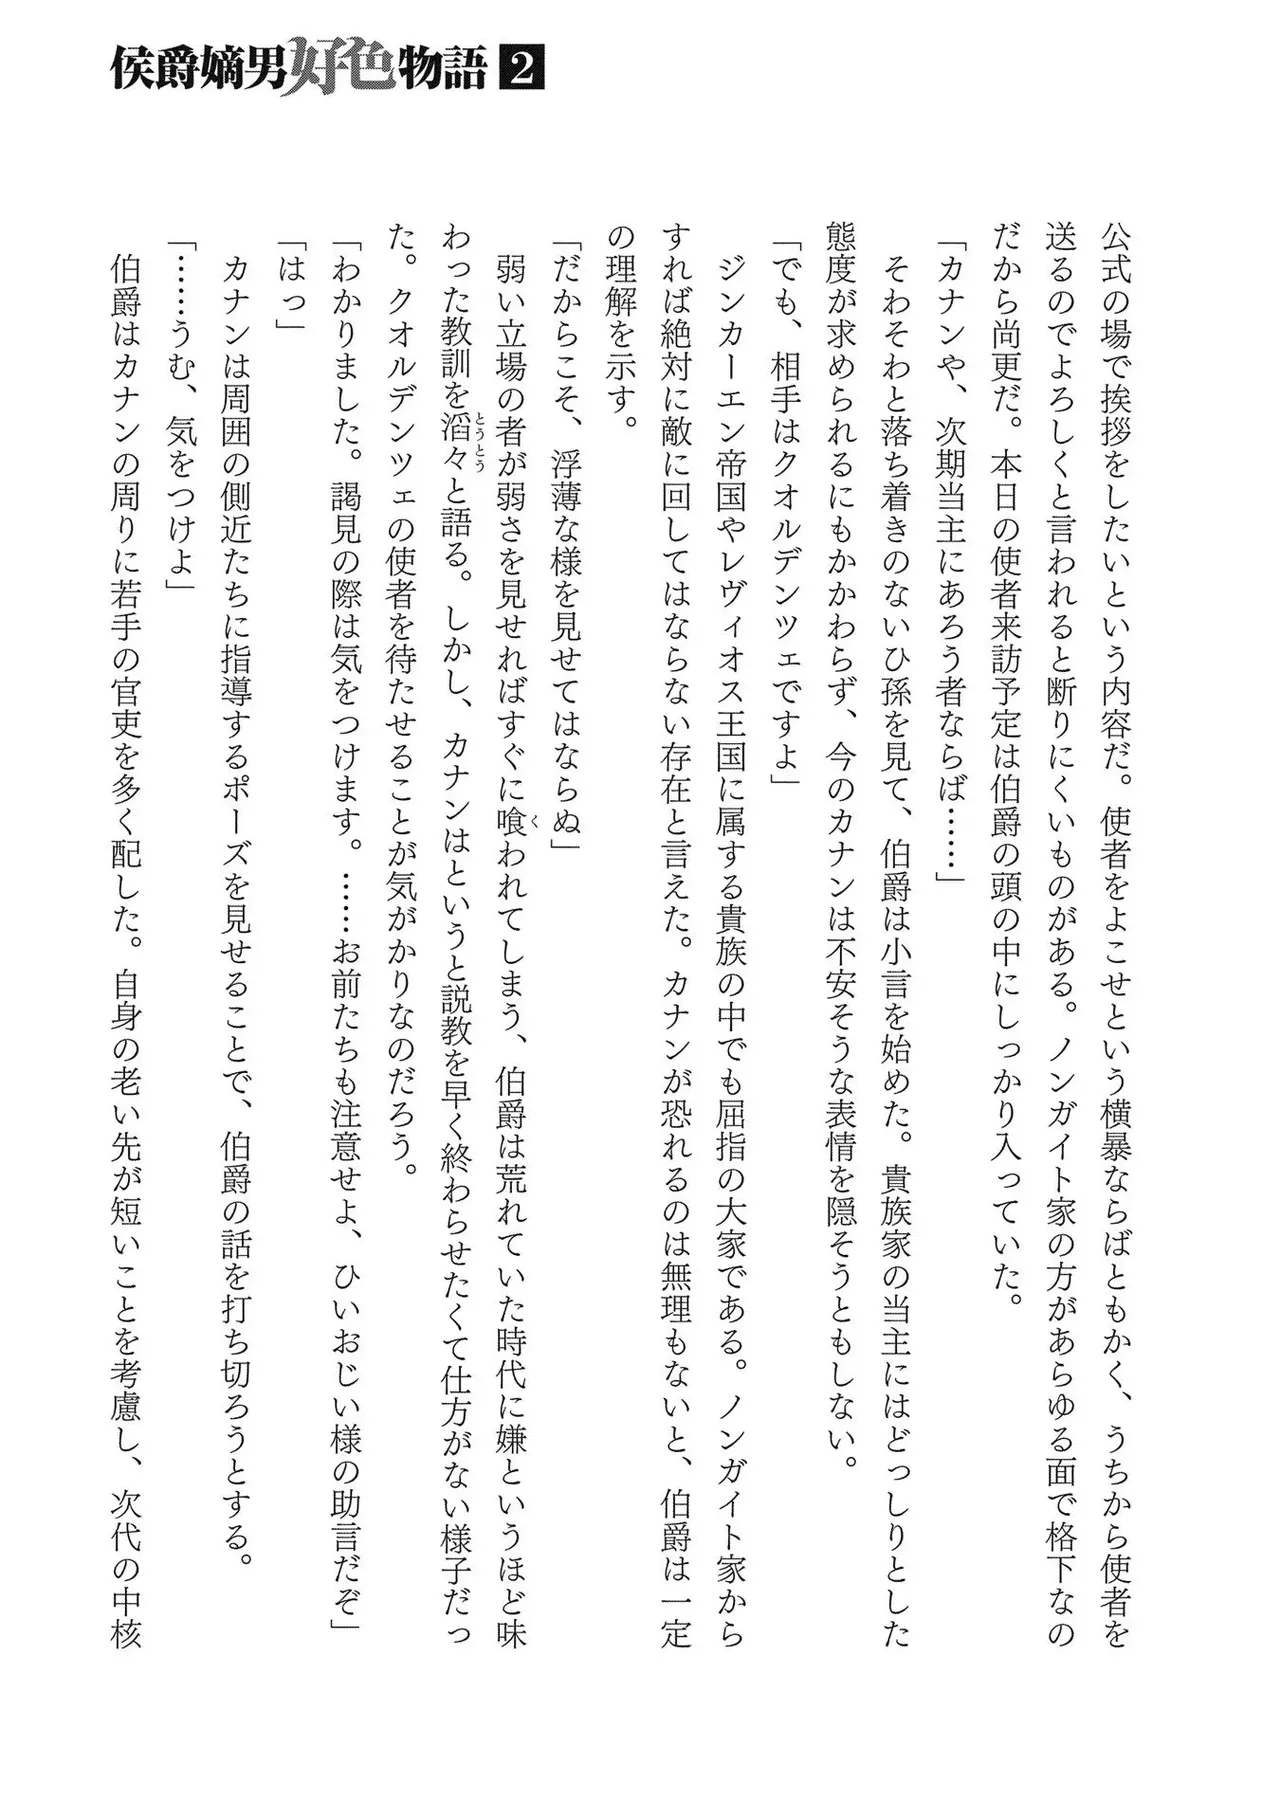 侯爵嫡男好色物語 2
公式の場で挨拶をしたいという内容だ。使者をよこせという横暴ならばともかく、うちから使者を
送るのでよろしくと言われると断りにくいものがある。ノンガイト家の方があらゆる面で格下なの
だから尚更だ。本日の使者来訪予定は伯爵の頭の中にしっかり入っていた。
「カナンや、次期当主にあろう者ならば……」
そわそわと落ち着きのないひ孫を見て、伯爵は小言を始めた。貴族家の当主にはどっしりとした
態度が求められるにもかかわらず、今のカナンは不安そうな表情を隠そうともしない。
「でも、相手はクオルデンツェですよ」
ジンカーエン帝国やレヴィオス王国に属する貴族の中でも屈指の大家である。ノンガイト家から
すれば絶対に敵に回してはならない存在と言えた。カナンが恐れるのは無理もないと、伯爵は一定
の理解を示す。
「だからこそ、浮薄な様を見せてはならぬ」
弱い立場の者が弱さを見せればすぐに喰われてしまう、伯爵は荒れていた時代に嫌というほど味
わった教訓を滔々と語る。しかし、カナンはというと説教を早く終わらせたくて仕方がない様子だっ
た。クオルデンツェの使者を待たせることが気がかりなのだろう。
「わかりました。謁見の際は気をつけます。……お前たちも注意せよ、ひいおじい様の助言だぞ」
「はっ」
カナンは周囲の側近たちに指導するポーズを見せることで、伯爵の話を打ち切ろうとする。
「……うむ、気をつけよ」
伯爵はカナンの周りに若手の官吏を多く配した。自身の老い先が短いことを考慮し、次代の中核